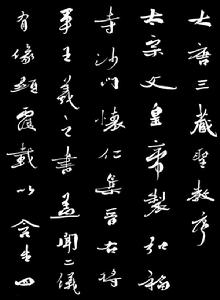 大唐三藏聖教序
太宗文皇帝製弘福
寺沙門懷仁集晉右將
軍王羲之書蓋聞二儀
有像顯覆載以含生四